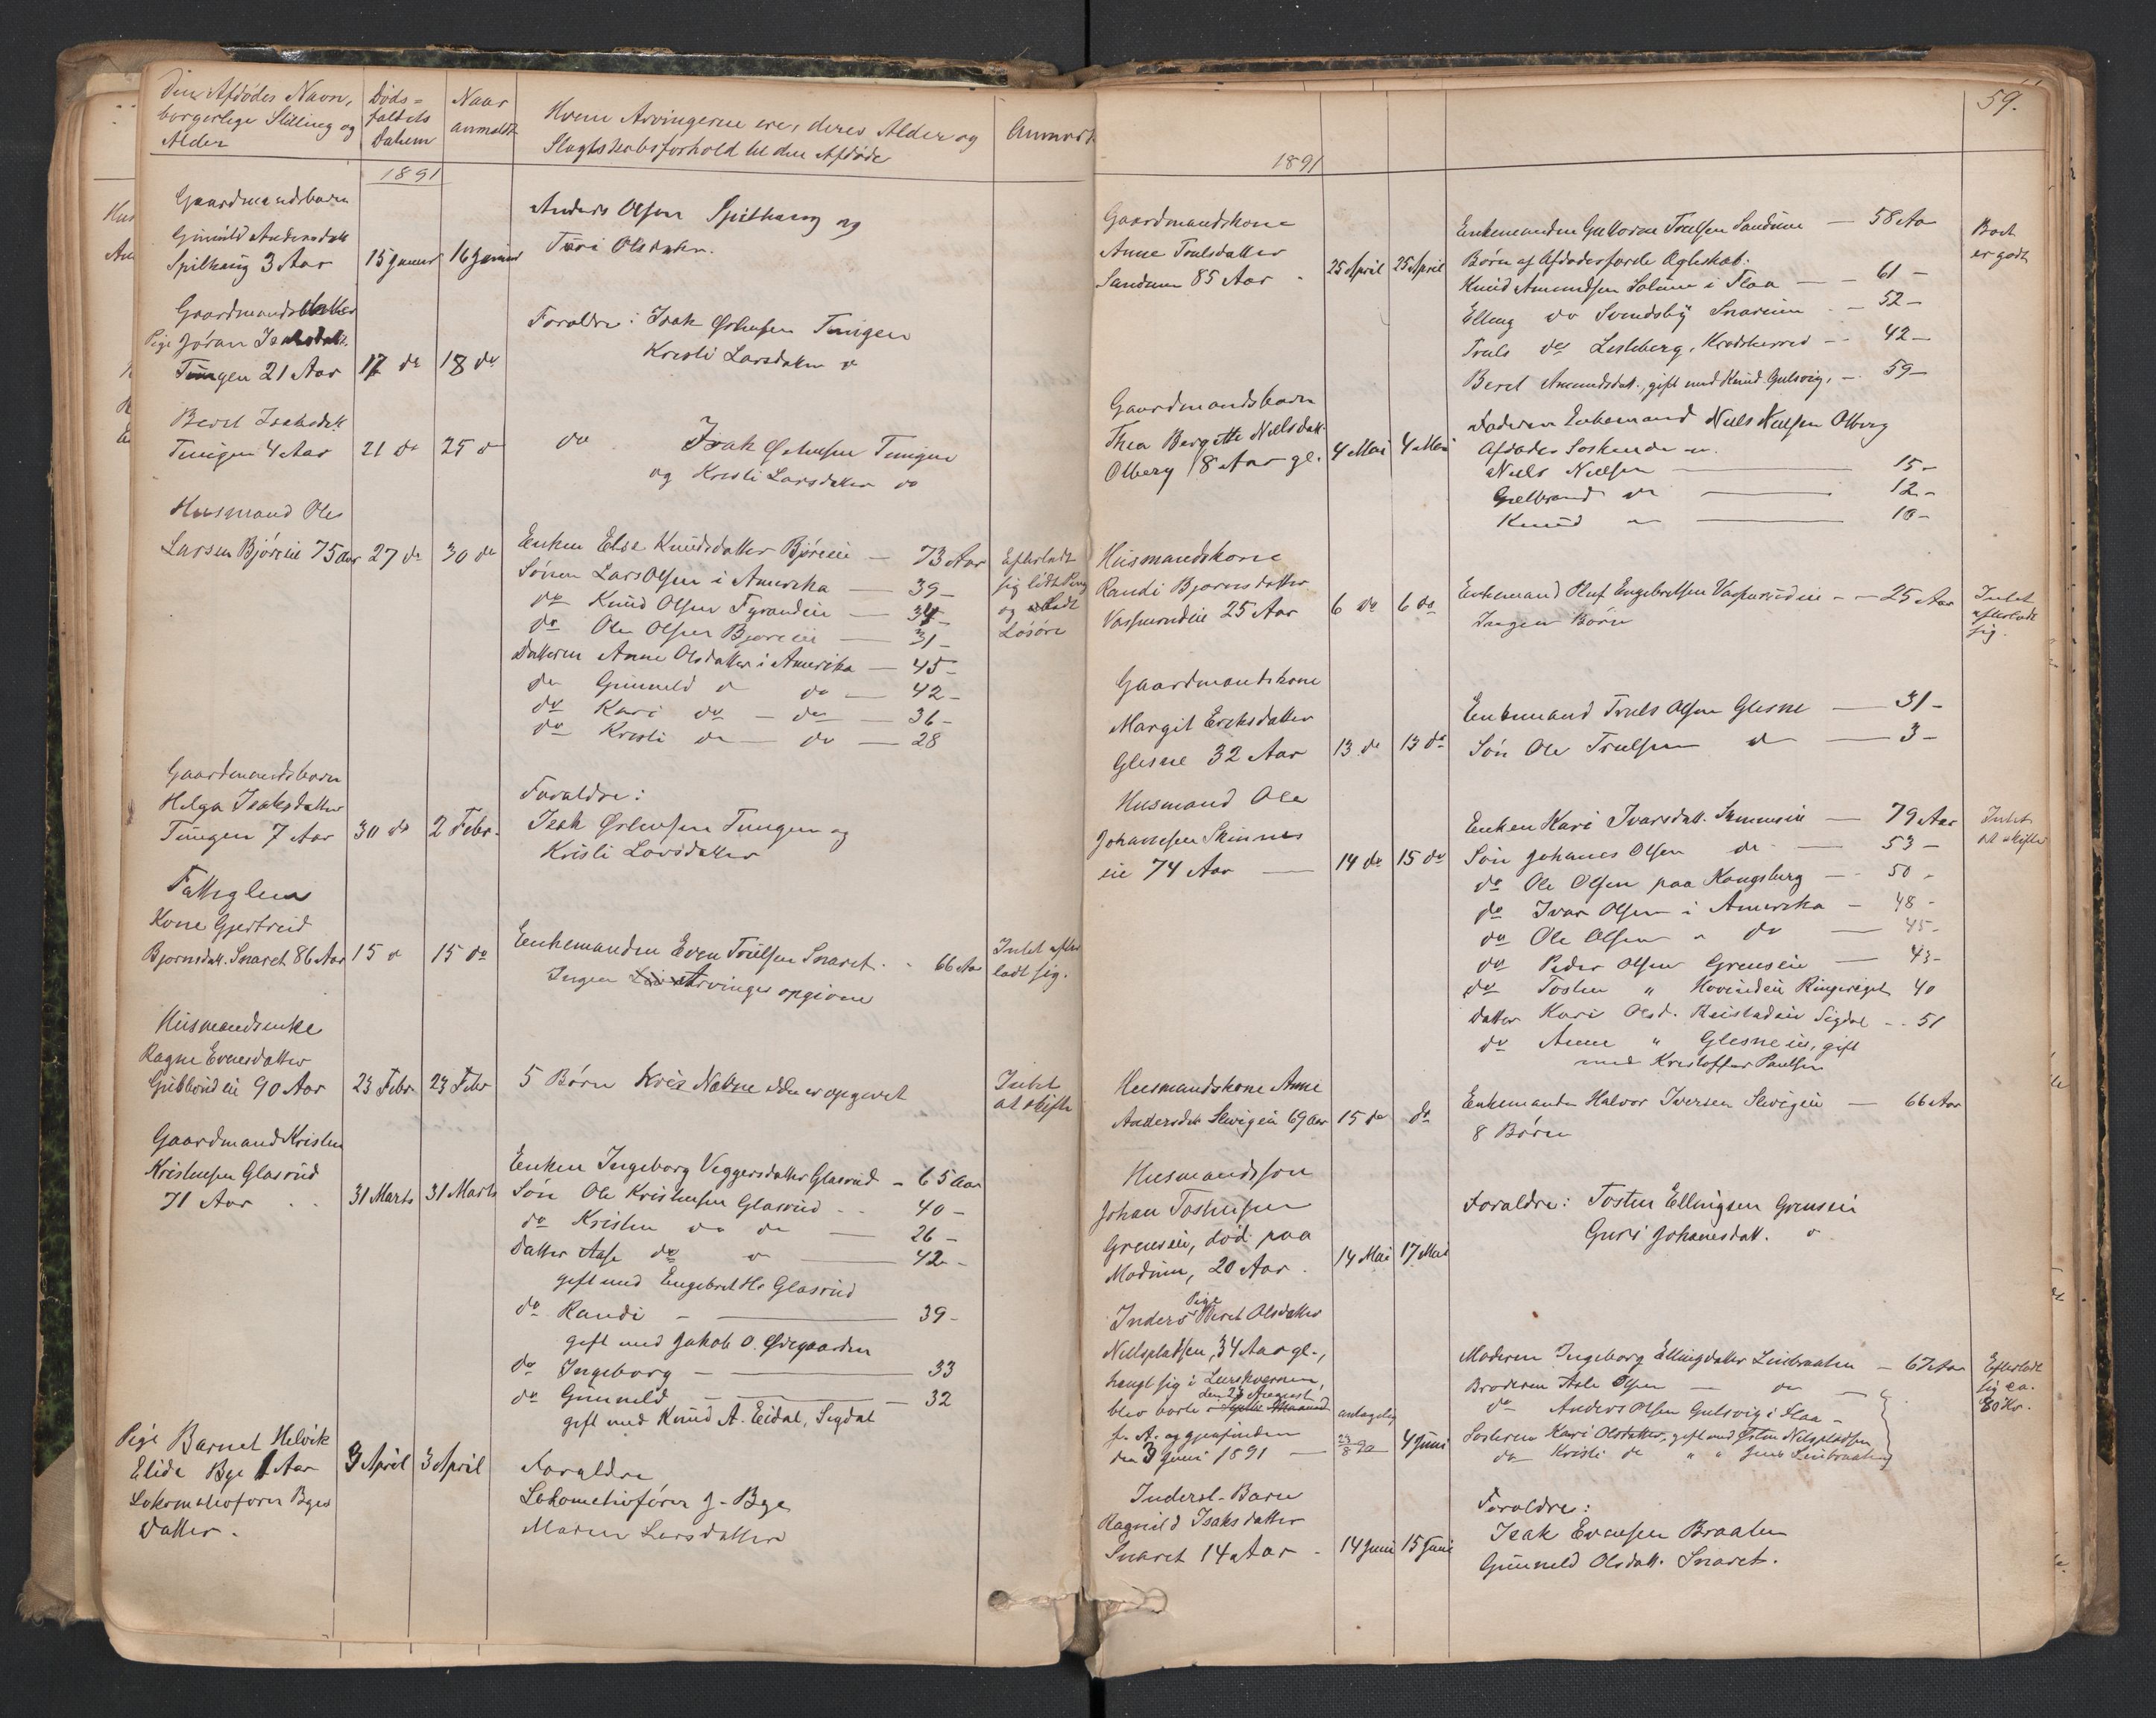 Den Afdødes Navn,
borgerlige Stilling og
Alder
Døds=
faldets
Datum
Naar
anmeldt
Hvem Arvingerne ere, deres Alder og
Slægtskabsforhold til den Afdøde
Anmærk
1891
Gaardmandsbarn
Gunild Andersdatt
Spilhaug 3 Aar
15 Januar
16 Januar
Anders Olsen Spilhaug og
Turi Olsdatter.
Gaardmandsdatter
Pige Jøran Isaksdatt.
Tungen 21 Aar
17 do
18 do
Forældre: Isak Østensen Tungen
Kristi Larsdatter do
Beret Isaksdatt
Tungen 4 Aar
21 do
25 do
do Isak Østensen Tungen
og Kristi Larsdatter do
Husmand Ole
Larsen Bjøreie 75 Aar
27 do
30 do
Enken Else Knudsdatter Bjøreie — 73 Aar
Sønnen Lars Olsen i Amerika — 39 —
do Knud Olsen Fyrandeie — 34 —
do Ole Olsen Bjøreie — 31 —
Datteren Anne Olsdatter i Amerika — 45 —
do Gunneld do do — 42 —
do Kari do — do — 36 —
do Kristi do — do — 28
Efterladt
sig lidt Peng
og lidt
Løsøre
Gaardmandsbarn
Helga Isaksdatter
Tungen 7 Aar
30 do
2 Febr.
Forældre:
Isak Østensen Tungen og
Kristi Larsdatter
Fattiglem
Kone Gjertrud
Bjørnsdatt. Snaret 86 Aar
15 do
15 do
Enkemanden Even Trulsen Snaret. - 66 Aar
Ingen Arvinger opgivne
Intet efter
ladt sig.
Husmandsenke
Ragne Evensdatter
Gulbrudeie 90 Aar
23 Febr
23 Febr
5 Børn hvis Navne ikke er opgivet
Intet
at skifte
Gaardmand Kristen
Kristensen Glasrud
71 Aar
31 Marts
31 Marts
Enken Ingeborg Veggersdatter Glasrud — 65 Aar
Søn Ole Kristensen Glasrud - - 40 —
do Kristen do do — 26 —
Datter Aase do do — 42 —
gift med Engebret Hr Glasrud
do Randi — 39 —
gift med Jakob O. Ødegaarden
do Ingeborg — 33
do Gunneld — 32
gift med Knud A. Eidal, Sigdal
Pige Barnet Helvik
Elida Bye 1 Aar
Lokomotivfører Byes
Datter.
3 April
3 April
Forældre
Lokomotivfører J. Bye
Maren Larsdatter
59.
1891
Gaardmandskone
Anne Trulsdatter
Sandum 85 Aar
25 April
25 April
Enkemanden Guttorm Trulsen Sandum — 58 Aar
Børn af Afdødes første Ægteskab:
Knud Amundsen Solum i Flaa — 61 —
Elling do Svendsby Snarum — 52 —
Truls do Lesteberg, Krødsherred — 42 —
Beret Amundsdatt., gift med Knud Gulsvig, — 59 —
Boet
er godt
Gaardmandsbarn
Thea Bergitte Nielsdatt.
Olberg 18 Aar gl.
4 Mai
4 Mai
Faderen Enkemand Niels Nielsen Olberg
Afdødes Søskende er.
Niels Nielsen — 15 —
Gulbrand do — 12 —
Knud do — 10 —
Husmandskone
Randi Bjørnsdatter
Vasbunndeie 25 Aar
6 do
6 do
Enkemand Oluf Engebretsen Vasbunndeie — 25 Aar
Ingen Børn
Intet
efterladt
sig.
Gaardmandskone
Margit Eriksdatter
Glesne 32 Aar
13 do
13 do
Enkemand Truls Olsen Glesne — 31 —
Søn Ole Trulsen do — 3 —
Husmand Ole
Johannesen Skinnes
eie 74 Aar —
14 do
15 do
Enken Kari Ivarsdatt. Skinneseie — 79 Aar
Søn Johanes Olsen do — 53 —
do Ole Olsen paa Kongsberg — 50 —
do Ivar Olsen i Amerika — 48 —
do Ole Olsen " do — 45 —
do Peder Olsen Grenseie — 43 —
do Tosten " Hovindeie Ringeriget 40
Datter Kari Olsd. Reistadeie Sigdal - . 51
do Anne " Glesneeie, gift
med Kristoffer Paulsen
Intet
at skifte
Husmandskone Anne
Andersdatt. Slevigeie 69 Aar
15 do
do
Enkemanden Halvor Iversen Slevigeie — 66 Aar
8 Børn
Husmandssøn
Johan Tostensen
Grenseie, død paa
Modum, 20 Aar.
14 Mai
17 Mai
Forældre: Tosten Ellingsen Grenseie
Guri Johanesdatt. do
Inderst Pige Beret Olsdatter
Nilsplatsen, 34 Aar gl.,
hengt sig i
blev borte den 23 August
f. A. og gjenfunden
den 3 Juni 1891 —
antagelig
23/8 90
4 Juni
Moderen Ingeborg Ellingsdatter Linbraaten — 67 Aar
Broderen Asle Olsen — do —
do Anders Olsen Gulsvig i Flaa —
Søsteren Kari Olsdatter, gift med Østen Nilsplatsen
do Kristi do " " Jens Linbraaten
Efterladt
sig ca.
80 Kr.
Inderst-Barn
Ragnild Isaksdatter
Snaret 14 Aar
14 Juni
15 Juni
Forældre:
Isak Evensen Braaten
Gunneld Olsdatt. Snaret.